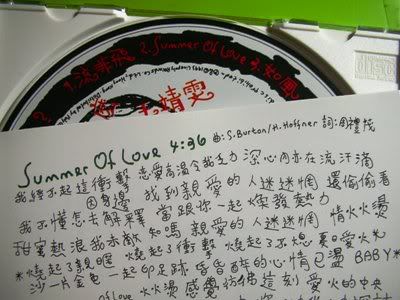 1.流非飛 2.Summer Of Love 3.如風
王靖雯
Summer Of Love 4:36 曲:S.Burton/H.Hoffner 詞:周禮茂
我經不起這衝擊 戀愛高溫令我乏力 深心內亦在流汗滴
因身邊 找到親愛的人迷迷惘 還偷偷看
我不懂怎去解釋 當跟你一起煥發熱力
甜蜜熱浪我亦敵 知嗎親愛的人迷迷惘 情火火燙
*燒起了親暱 燒起了衝擊 燒起了不熄夏日愛火
*沙一片金色 一起印足跡 昏昏醉的心情已盪 BABY*
Of Love 火火燙感覺 彷彿這刻 愛火的中央